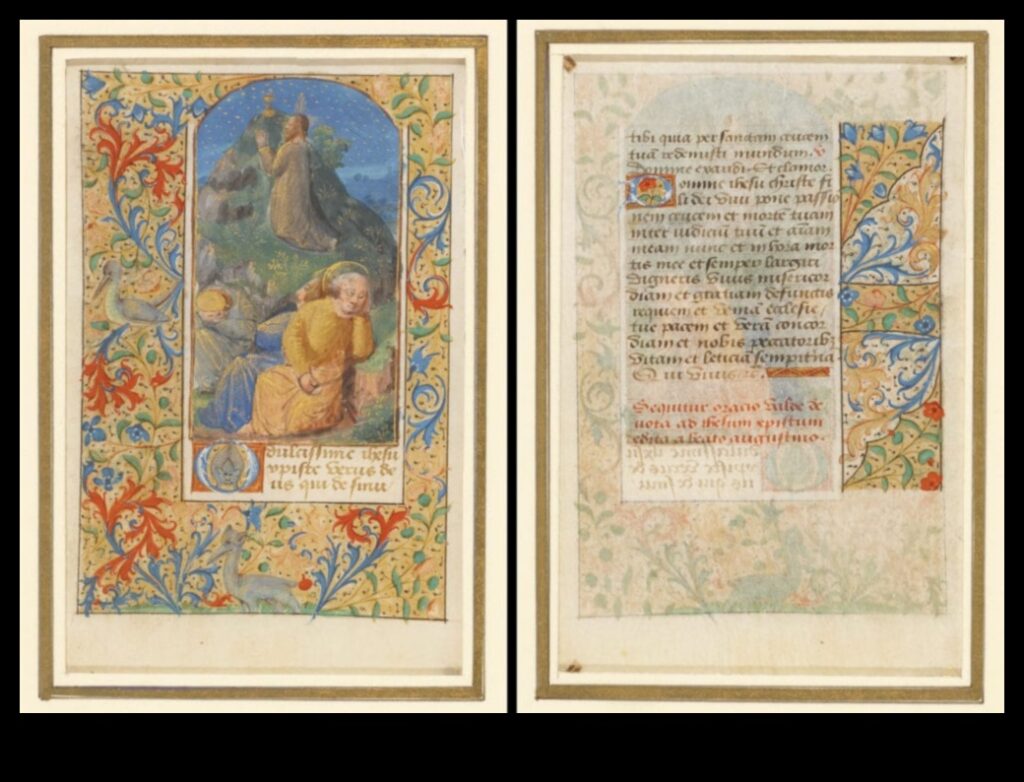 O dulcissime ihesu
xpiste verus de
us qui de sinu
tibi quia per sanctam crucem
tuã redemisti mundum. v
Domine exaudi. Et clamor
Domine ihesu christe fi
li dei vivi pone passio
nem crucem et mortẽ tuam
inter iudiciũ tuũ et aīam
meam nunc et in hora mor
tis mee et semper largiri
digneris vivis misericor
diam et gratiam defunctis
requiem et veniã ecclesie
tue pacem et verã concor
diam et nobis peccatorib3
vitam et leticiã sempiternã
Qui vivis
Sequitur oracio valde de
vota ad ihesum xpistum
edita a beato augustino.